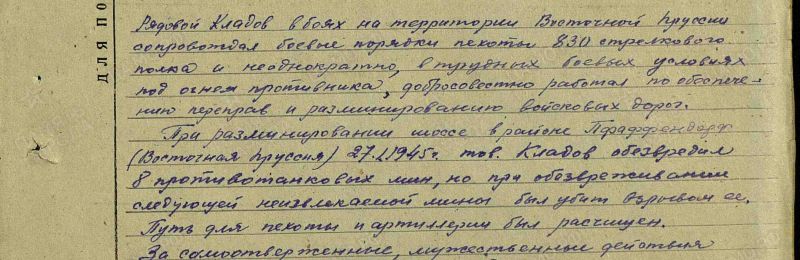 ДЛЯ ПО
Рядовой Кладов в боях на территории Восточной Пруссии
сопровождал боевые порядки пехоты 830 стрелкового
полка и неоднократно, в трудных боевых условиях
под огнем противника, добросовестно работал по обеспече-
нию переправ и разминированию войсковых дорог.
При разминировании шоссе в районе Пфаффендорф
(Восточная Пруссия) 27.1.1945г. тов. Кладов обезвредил
8 противотанковых мин, но при обезвреживании
следующей неизвлекаемой мины был убит взрывом ее.
Путь для пехоты и артиллерии был расчищен.
За самоотверженные, мужественные действия